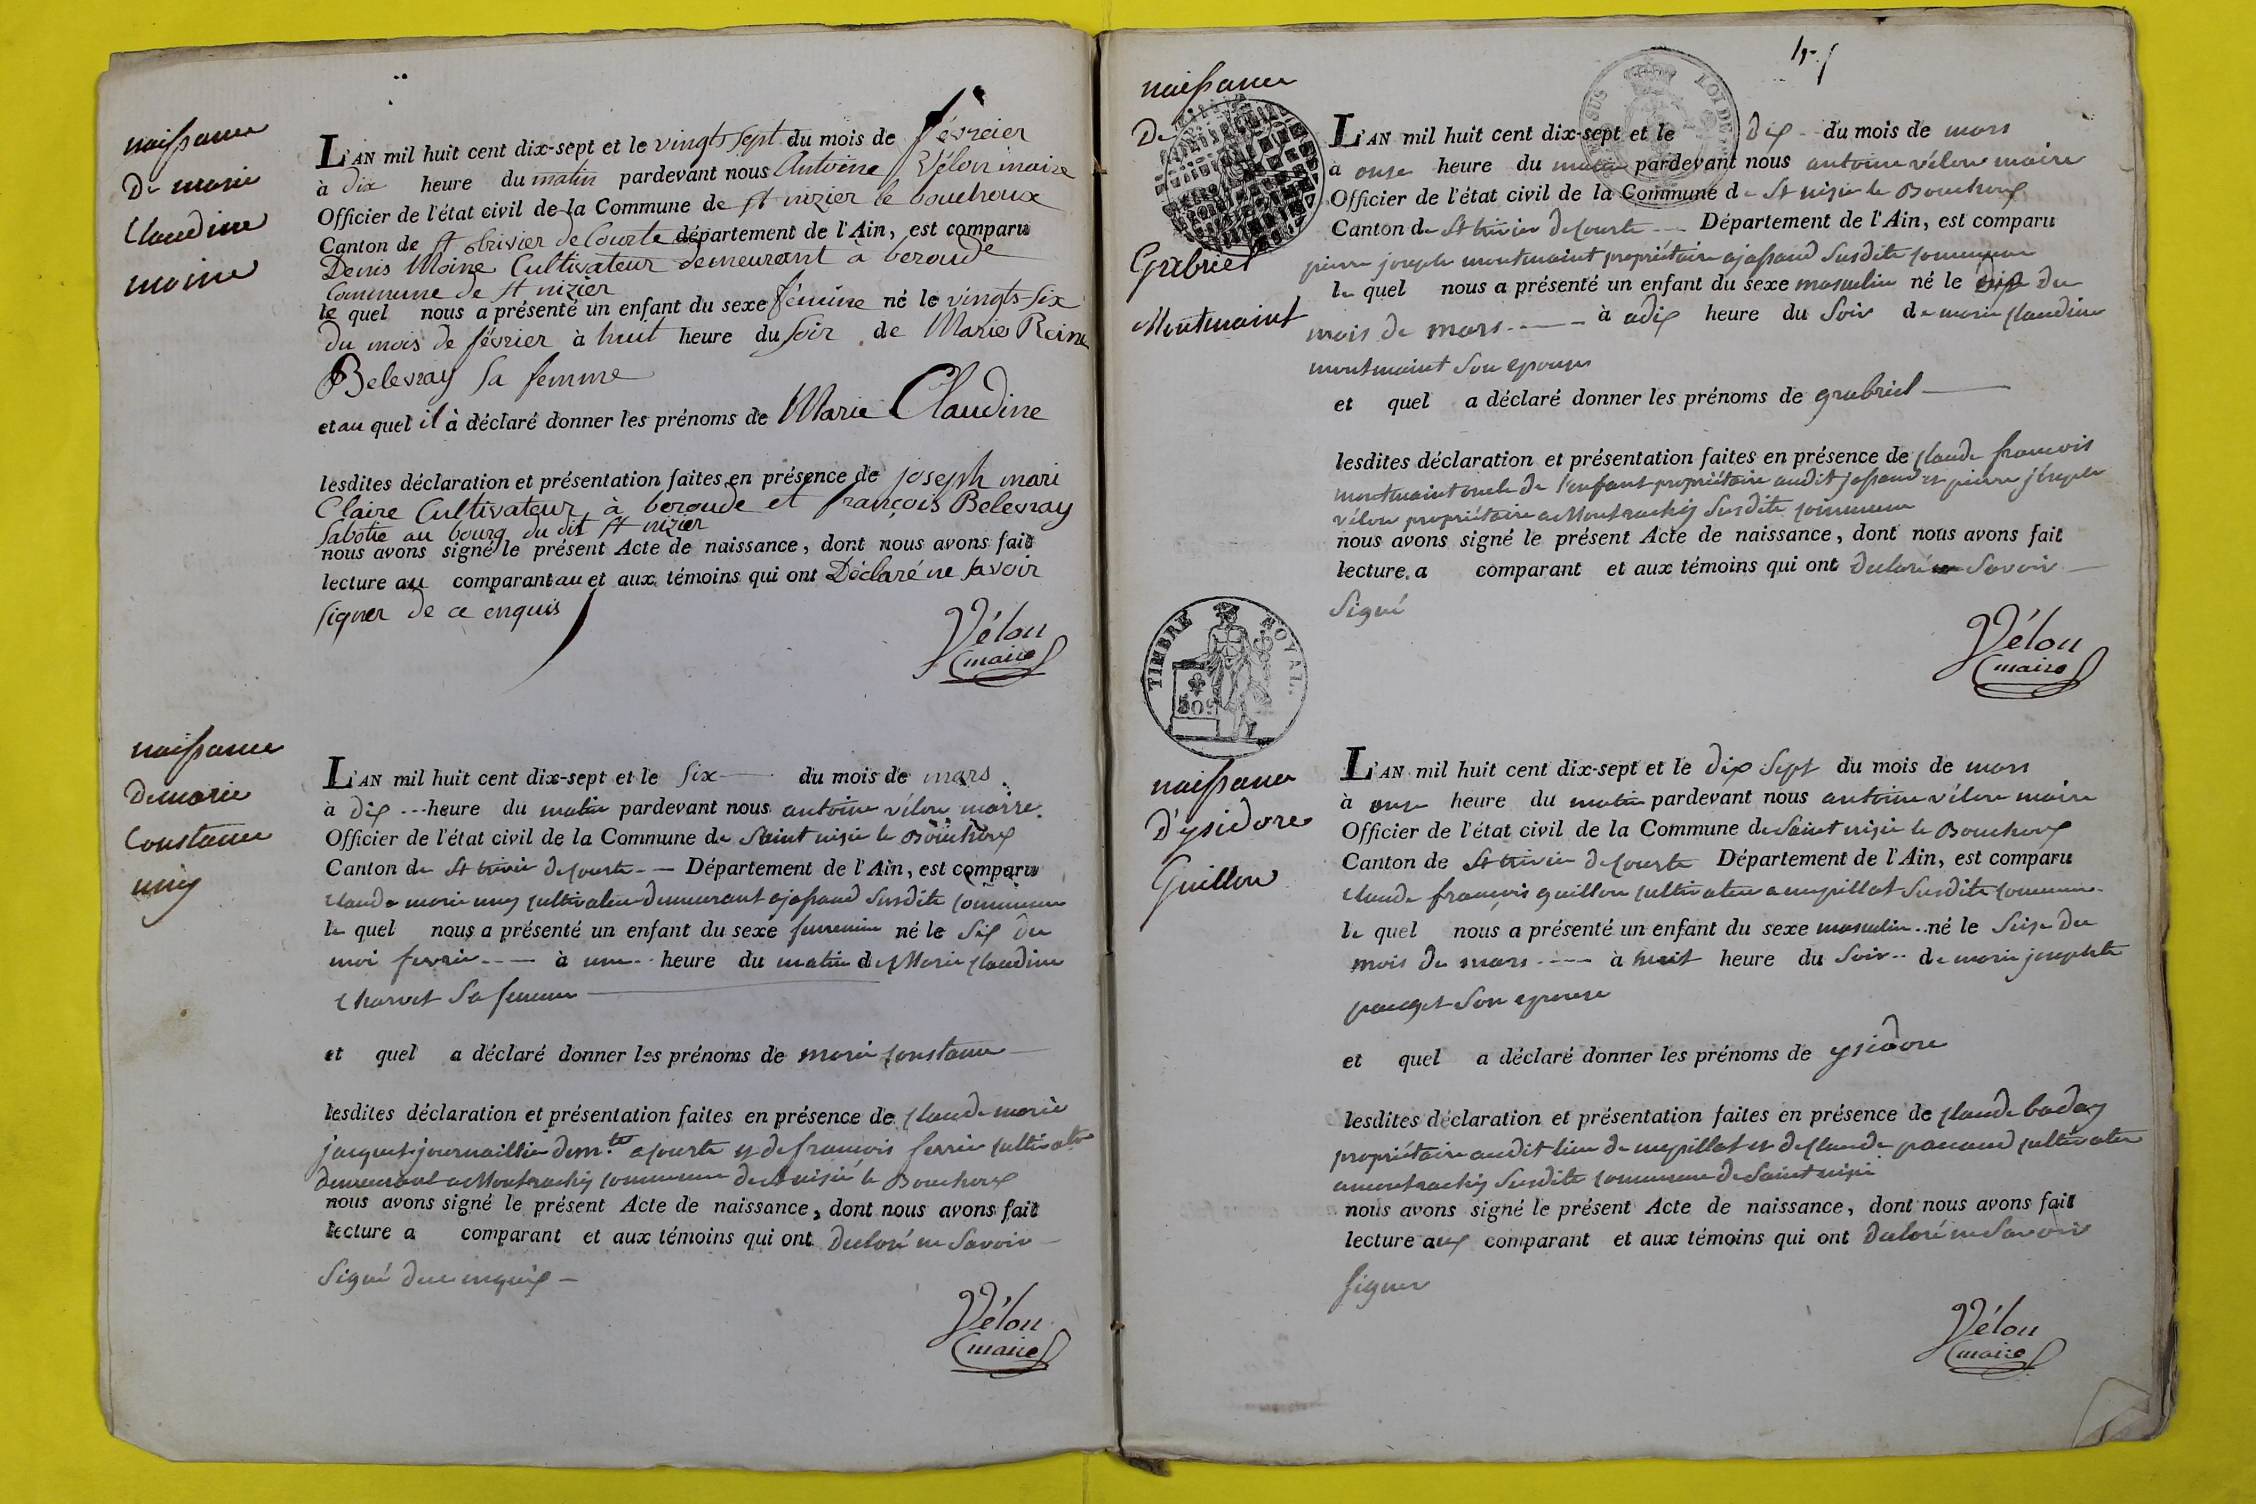 naissance
De marie
Claudine
moine
L'AN mil huit cent dix-sept et le vingts sept du mois de février
à dix heure du matin pardevant nous Antoine Vélon maire
Officier de l'état civil de la Commune de st nizier le bouchoux
Canton de st trivier de Courte département de l'Ain, est comparu
Denis Moine Cultivateur demeurant à beroude
Commune de st nizier
le quel nous a présenté un enfant du sexe fémine né le vingts six
du mois de février à huit heure du soir de Marie Reine
Belevray sa femme
et au quel il à déclaré donner les prénoms de Marie Claudine
lesdites déclaration et présentation faites en présence de joseph mari
Claire Cultivateur à beroude et françois Belevray
Sabotie au bourg du dit st nizier
nous avons signé le présent Acte de naissance, dont nous avons fait
lecture au comparant au et aux témoins qui ont Déclaré ne savoir
signer de ce enquis
Vélon
maire
naissance
De marie
Constance
L'AN mil huit cent dix-sept et le six du mois de mars
à dix heure du matin pardevant nous antoine vélon maire
Officier de l'état civil de la Commune de Saint nizie le Bouchoux
Canton de St trivie de courte Département de l'Ain, est comparu
claude marie cultivateu demeurant a jassand susdite commune
le quel nous a présenté un enfant du sexe femenin né le six du
moi fevrie à une heure du matin de Marie claudine
charvet sa femme
et quel a déclaré donner les prénoms de marie constance
lesdites déclaration et présentation faites en présence de claude marie
jacquet journaillie dem.te a courte et de francois ferrie cultivateu
demeurant a Montrachy commune de st nizié le Bouchoux
nous avons signé le présent Acte de naissance, dont nous avons fait
lecture a comparant et aux témoins qui ont declaré ne savoir
signé de ce enquis
Vélon
maire
naissance
De
Grabriel
Montmaint
L'AN mil huit cent dix-sept et le dix du mois de mars
à onze heure du matin pardevant nous antoine vélon maire
Officier de l'état civil de la Commune de St nizie le Bouchoux
Canton de St trivie de courte Département de l'Ain, est comparu
pierre joseph montmaint propriétaire a jassand susdite commune
le quel nous a présenté un enfant du sexe masculin né le du
mois de mars à adix heure du soir de marie claudine
montmaint son epouse
et quel a déclaré donner les prénoms de grabriel
lesdites déclaration et présentation faites en présence de claude francois
montmaint oncle de l'enfant propriétaire audit jassand et pierre joseph
vélon propriétaire a Montrachy susdite commune
nous avons signé le présent Acte de naissance, dont nous avons fait
lecture a comparant et aux témoins qui ont declaré ne savoir
signé
Vélon
maire
TIMBRE ROYAL.
50c
naissance
D'ysidore
Guillon
L'AN mil huit cent dix-sept et le dix sept du mois de mars
à onze heure du matin pardevant nous antoine vélon maire
Officier de l'état civil de la Commune de Saint nizie le Bouchoux
Canton de St trivie de courte Département de l'Ain, est comparu
claude françois guillon cultivateu a mepillat susdite commune
le quel nous a présenté un enfant du sexe masculin né le seize du
mois de mars à huit heure du soir de marie josephte
pauget son epouse
et quel a déclaré donner les prénoms de ysidore
lesdites déclaration et présentation faites en présence de claude baday
propriétaire audit lieu de mepillat et de claude pacaud cultivateu
a montrachy susdite commune de Saint nizie
nous avons signé le présent Acte de naissance, dont nous avons fait
lecture aux comparant et aux témoins qui ont declaré ne savoir
signer
Vélon
maire